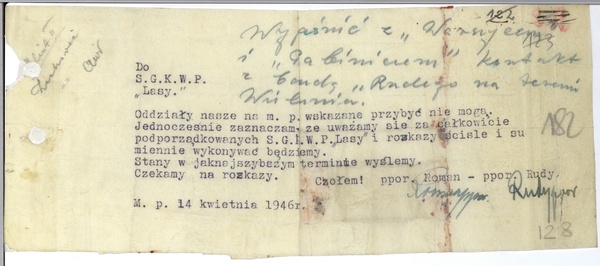 122
Wyjaśnić z „Warszycem
i „Babiniczem" kontakt
z bandą „Rudego na terenie
Wielunia.
Do
S.G.K.W.P.
„Lasy."
Oddziały nasze na m. p. wskazane przybyć nie mogą.
Jednocześnie zaznaczam, ze uważamy sie za całkowicie
podporządkowanych S.G.K.W.P.„Lasy" i rozkazy ścisle i su
miennie wykonywać będziemy.
Stany w jaknajszybszym terminie wyślemy.
Czekamy na rozkazy. Czołem! ppor. Roman - ppor. Rudy.
Rudy ppor
M. p. 14 kwietnia 1946r.
182
128